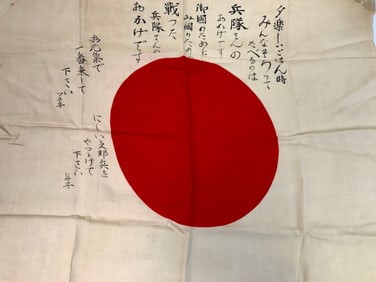 夕楽しいごはん時
みんなそろつて
たべるのは
兵隊さんの
おかげです
御国のために
御国のために
戦つた
兵隊さんの
おかげです
お元気で
一番乗して
下さい
にくい支那兵を
やつつけて
下さい